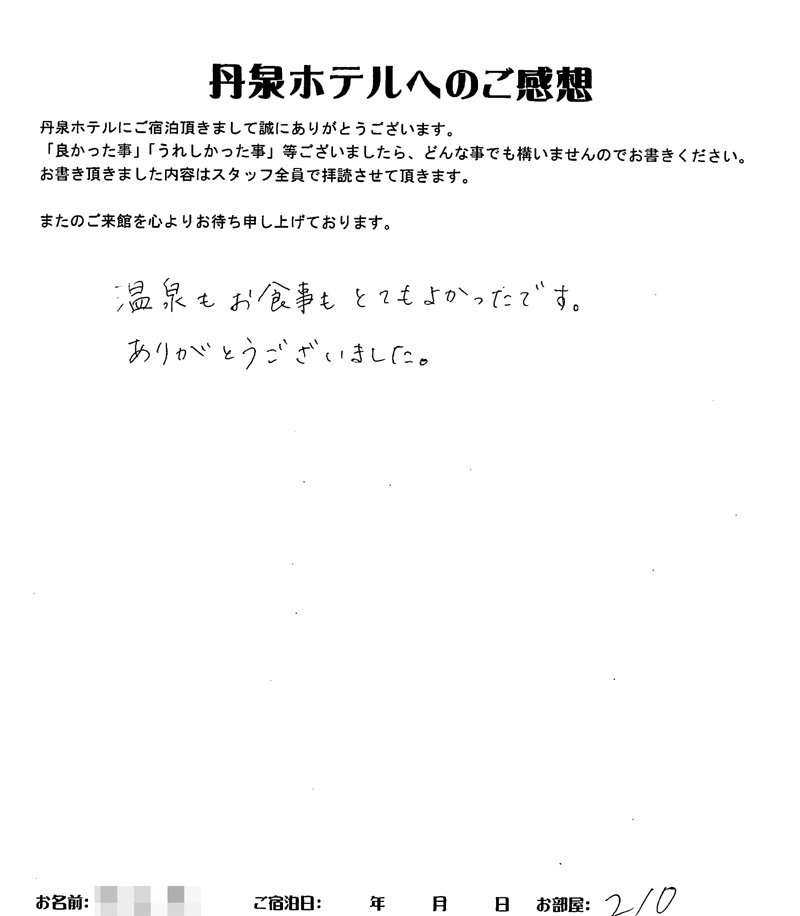 丹泉ホテルへのご感想
丹泉ホテルにご宿泊頂きまして誠にありがとうございます。
「良かった事」「うれしかった事」等ございましたら、どんな事でも構いませんのでお書きください。
お書き頂きました内容はスタッフ全員で拝読させて頂きます。
またのご来館を心よりお待ち申し上げております。
温泉もお食事もとてもよかったです。
ありがとうございました。
お名前: ご宿泊日: 年 月 日 お部屋: 210